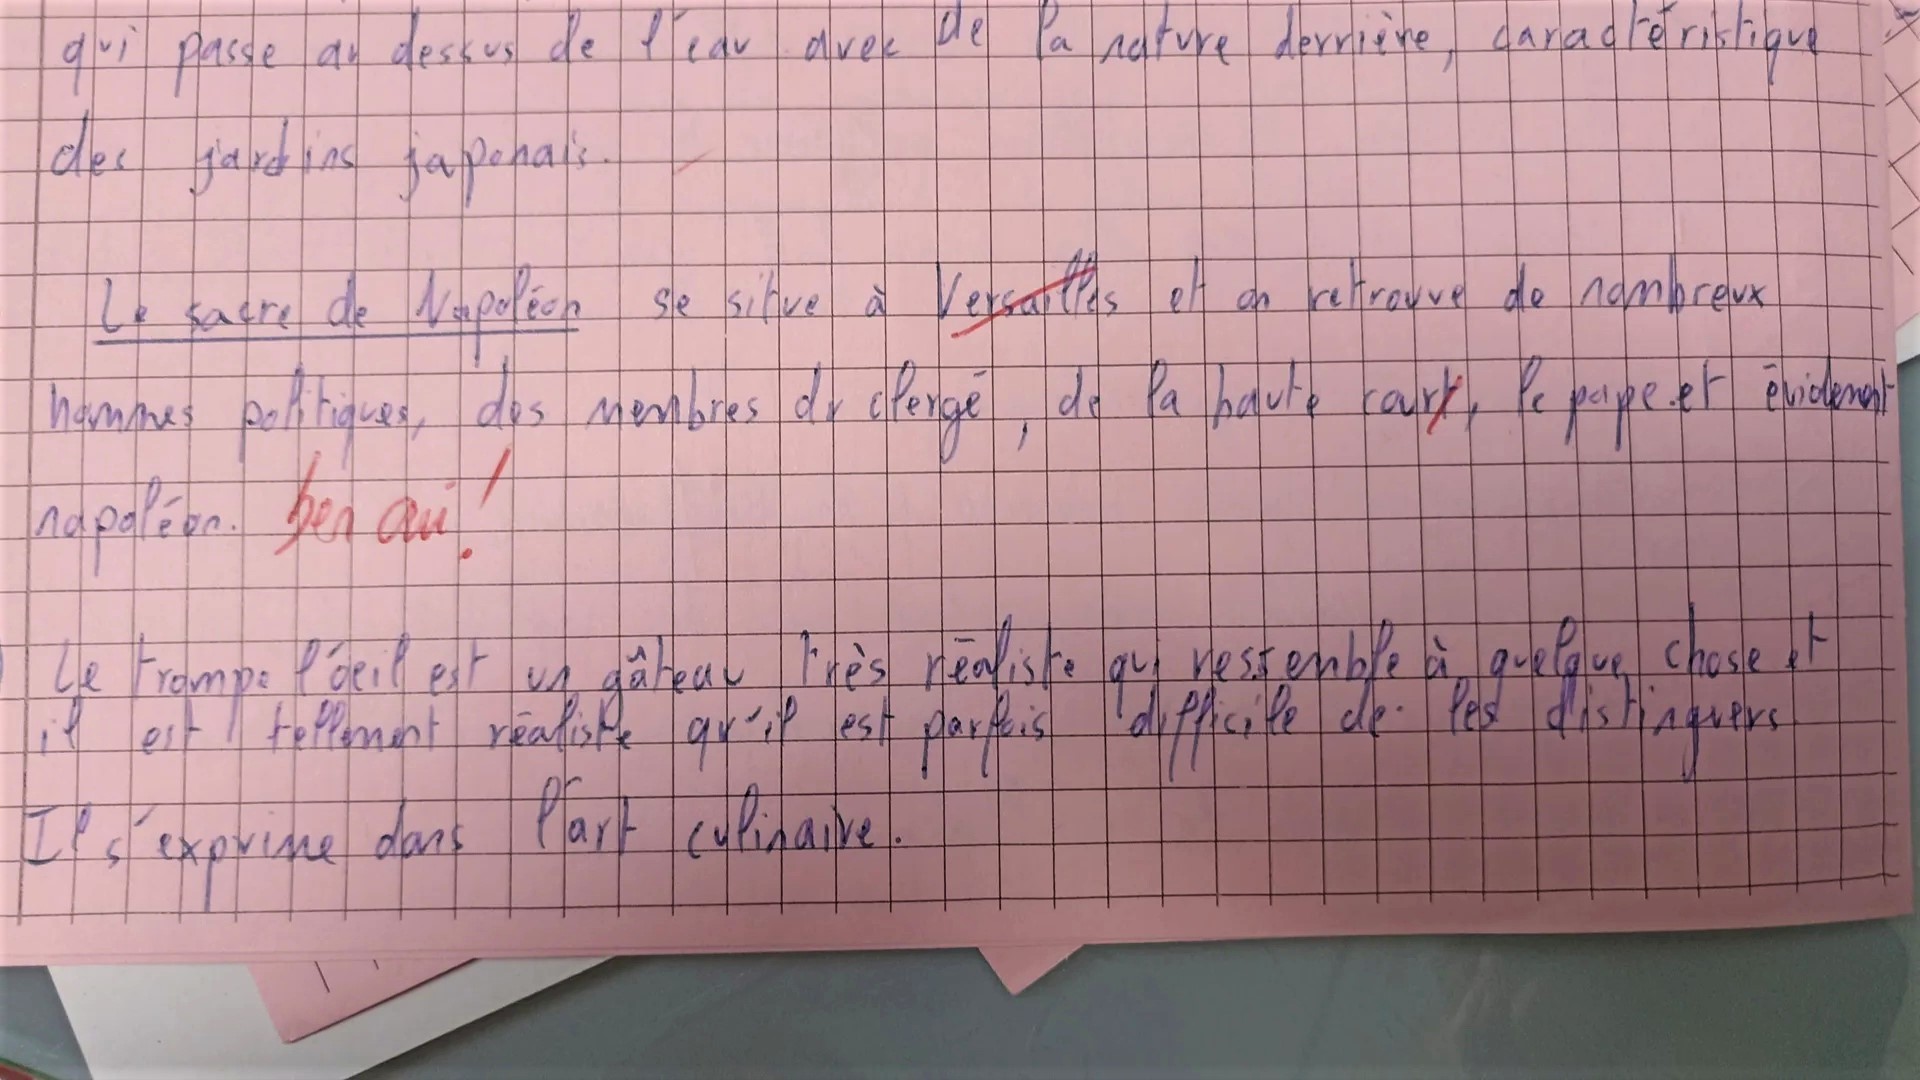 qui passe au dessus de l'eau avec de la nature derrière, caractéristique
des jardins japonais.
Le sacre de Napoléon se situe à Versailles et on retrouve de nombreux
hommes politiques, des membres du clergé, de la haute court, le pape et évidement
napoléon. ben oui !
Le trompe l'oeil est un gâteau très réaliste qui ressemble à quelque chose et
il est tellement réaliste qu'il est parfois difficile de les distinguers
Il s'exprime dans l'art culinaire.